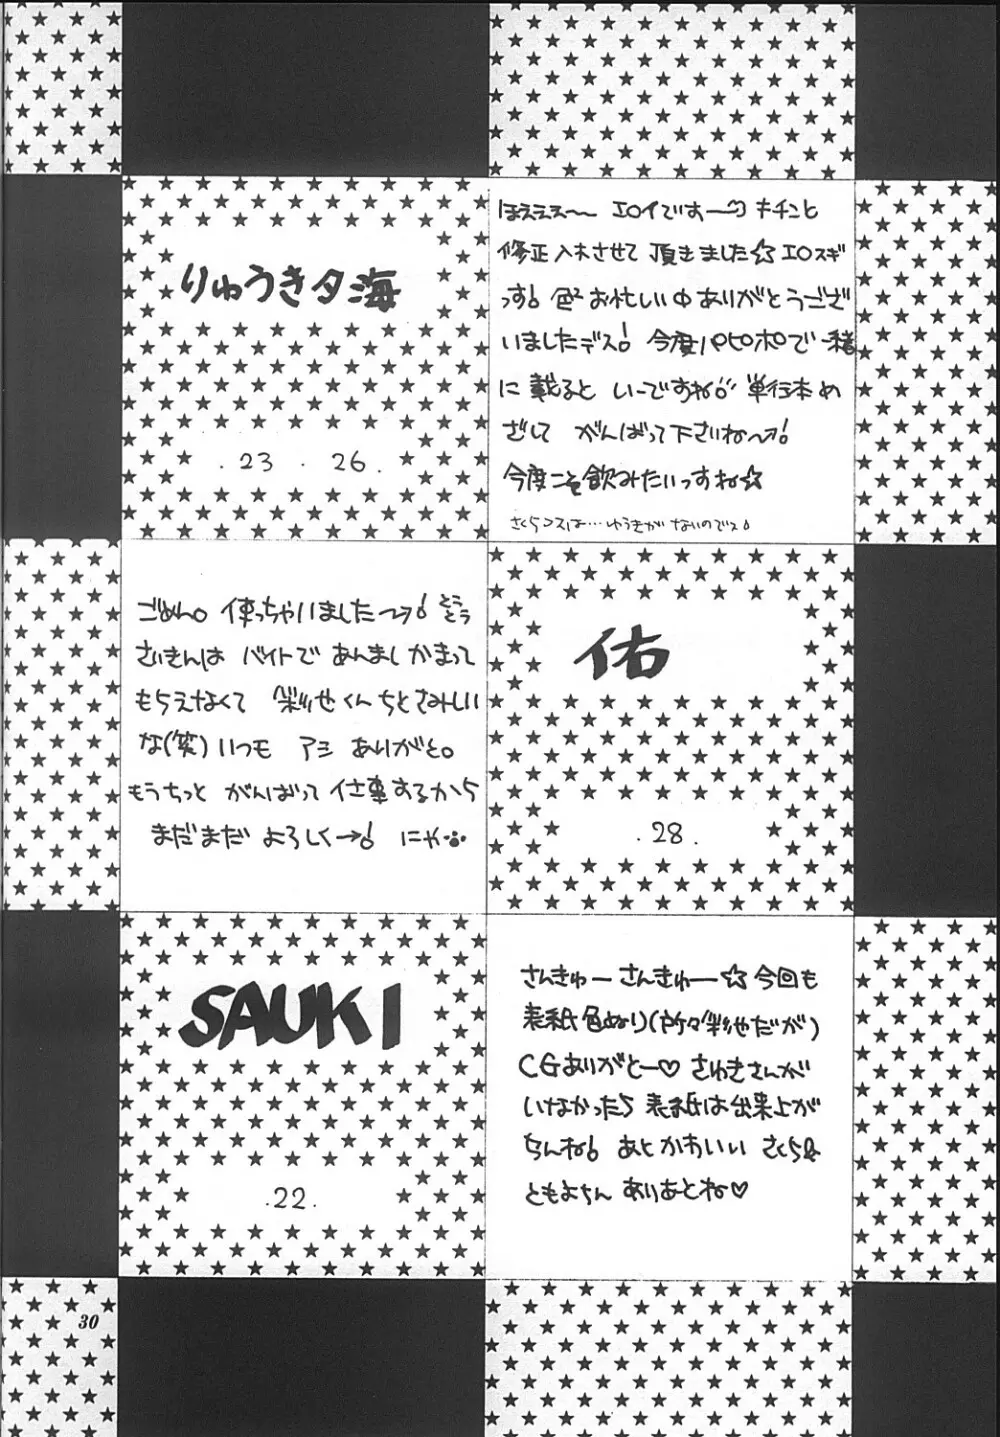 りゅうき夕海
.23 .26.
ほええぇ〜 エロイですーっ キチンと
修正入れさせて 頂きました☆エロスギ
っす! 色々お忙しい中ありがとうござ
いましたデス! 今度パピポで一緒
に載ると いーですねっ 単行本め
ざして がんばって下さいね〜!
今度こそ飲みたいっすね☆
さくらコスは…ゆうきが ないのでス!
ごめん。使っちゃいました〜! どうも
さいきんは バイトで あんまし かまって
もらえなくて 彩世くんちとさみしい
な(笑) いつも アシ ありがと。
もうちっと がんばって 仕事するから
まだまだ よろしく→! にゃ
佑
.28.
SAUKI
.22.
さんきゅー さんきゅー☆今回も
表紙色ぬり(所々彩世だが)
CGありがとー♡ さゆきさんが
いなかったら 表紙は出来上が
らんね! あと かわいい さくら&
ともよちん ありあとね♡
30